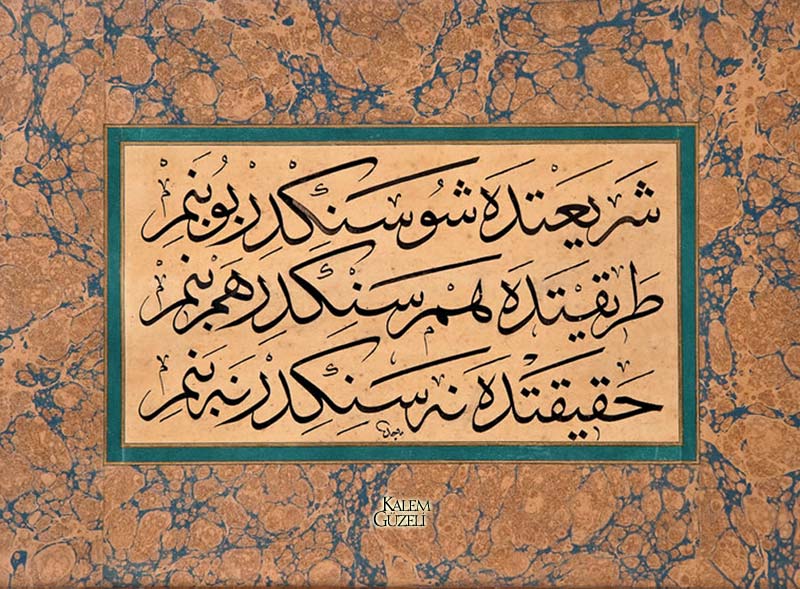 شَرِيعَتدَه شُو سَنِڭدِرْ بُو بَنِمْ
طَرِيقَتدَه هَمْ سَنِڭدِرْ هَمْ بَنِمْ
حَقِيقَتدَه نَه سَنِڭدِرْ نَه بَنِمْ
KALEM
GÜZELİ